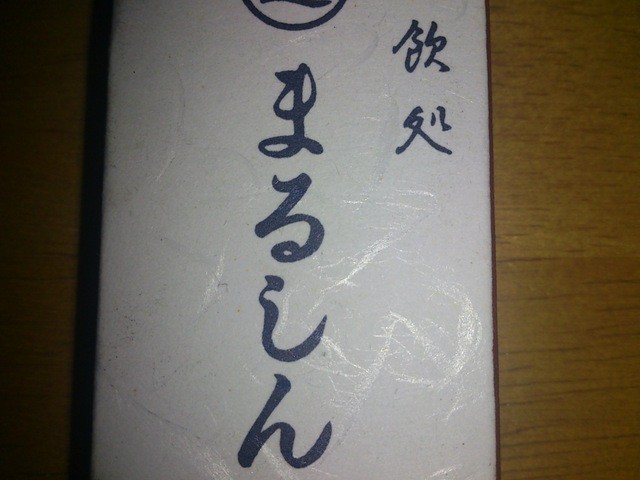 飲処
まるしん